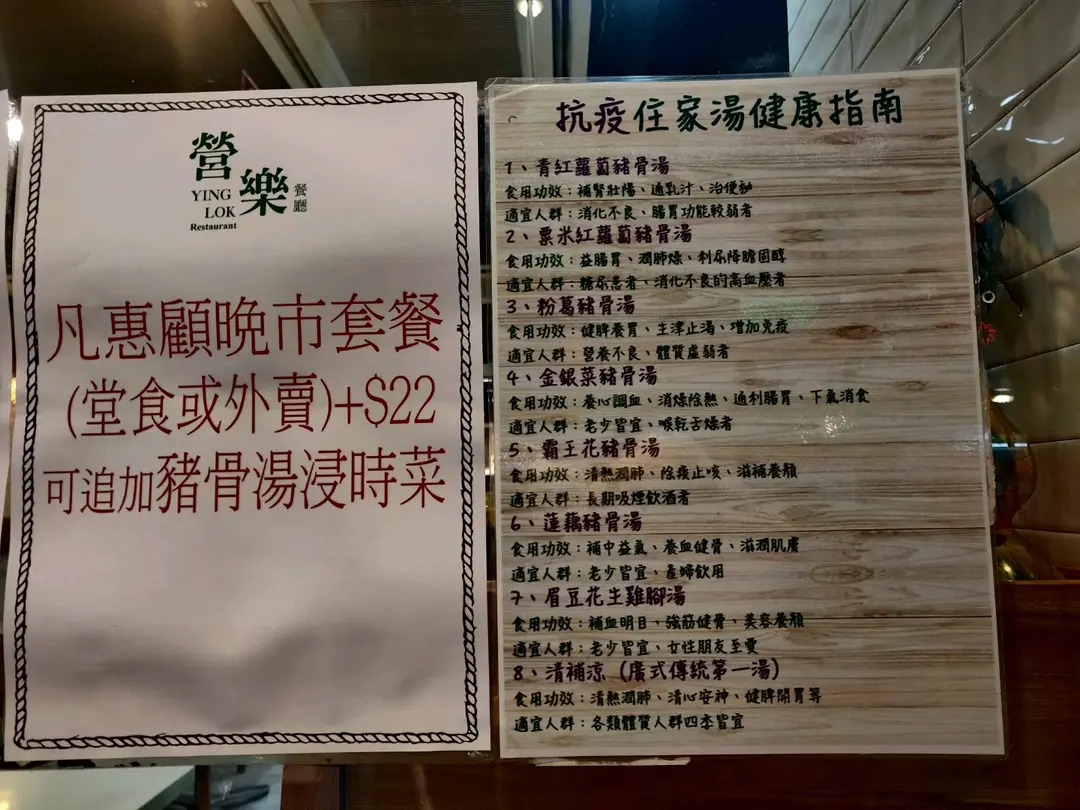 營樂
餐廳
YING
LOK
Restaurant
凡惠顧晚市套餐
(堂食或外賣)+$22
可追加豬骨湯浸時菜
抗疫住家湯健康指南
1、青紅蘿蔔豬骨湯
食用功效：補腎壯陽、通乳汁、治便秘
適宜人群：消化不良、腸胃功能較弱者
2、粟米紅蘿蔔豬骨湯
食用功效：益腸胃、潤肺燥、利尿降膽固醇
適宜人群：糖尿患者、消化不良的高血壓者
3、粉葛豬骨湯
食用功效：健脾養胃、生津止渴、增加免疫
適宜人群：營養不良、體質虛弱者
4、金銀菜豬骨湯
食用功效：養心調血、消燥除熱、通利腸胃、下氣消食
適宜人群：老少皆宜、喉乾舌燥者
5、霸王花豬骨湯
食用功效：清熱潤肺、除痰止咳、滋補養顏
適宜人群：長期吸煙飲酒者
6、蓮藕豬骨湯
食用功效：補中益氣、養血健骨、滋潤肌膚
適宜人群：老少皆宜、產婦飲用
7、眉豆花生雞腳湯
食用功效：補血明目、強筋健骨、美容養顏
適宜人群：老少皆宜、女性朋友至愛
8、清補涼（廣式傳統第一湯）
食用功效：清熱潤肺、清心安神、健脾開胃等
適宜人群：各類體質人群四季皆宜